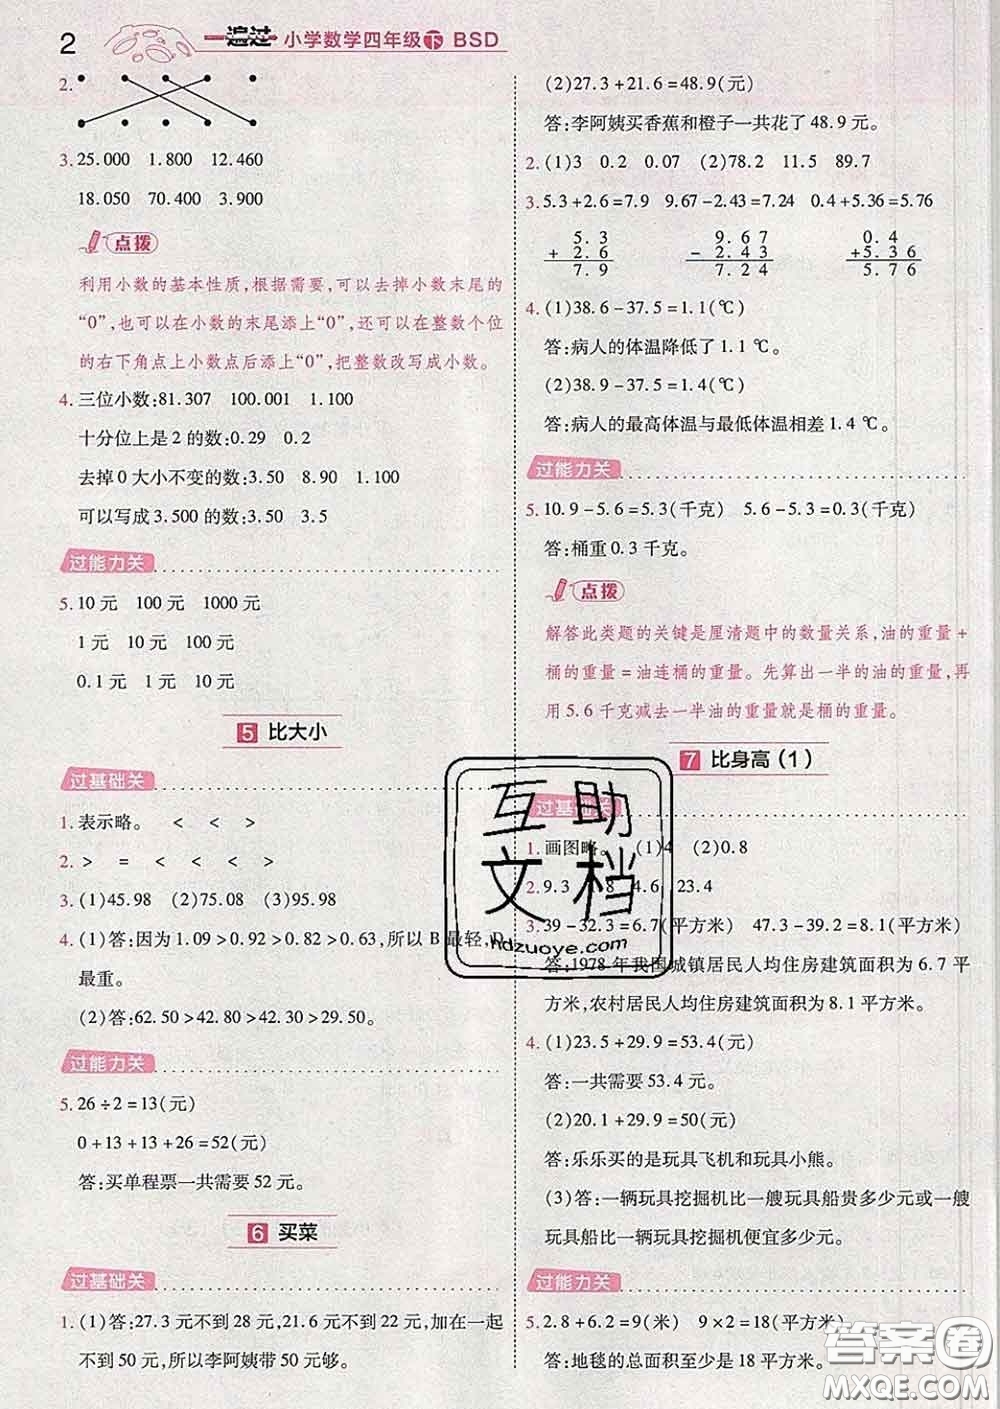 2
一遍过 小学数学四年级 下 BSD
2.
3. 25.000 1.800 12.460
18.050 70.400 3.900
点拨
利用小数的基本性质,根据需要,可以去掉小数末尾的
“0”,也可以在小数的末尾添上“0”,还可以在整数个位
的右下角点上小数点后添上“0”,把整数改写成小数。
4. 三位小数:81.307 100.001 3.100
十分位上是2的数:0.29 0.2
去掉0大小不变的数:3.50 8.90 3.100
可以写成3.500的数:3.50 3.5
过能力关
5. 10元 100元 1000元
1元 10元 100元
0.1元 1元 10元
5 比大小
过基础关
1. 表示略。 < < >
2. > = < < < >
3. (1)45.98 (2)75.08 (3)95.98
4. (1)答:因为1.09>0.92>0.82>0.63,所以B最轻,D
最重。
(2)答:62.50>42.80>42.30>29.50。
过能力关
5. 26÷2=13(元)
0+13+13+26=52(元)
答:买单程票一共需要52元。
6 买菜
过基础关
1. (1)答:27.3元不到28元,21.6元不到22元,加在一起
不到50元,所以李阿姨带50元够。
(2)27.3+21.6=48.9(元)
答:李阿姨买香蕉和橙子一共花了48.9元。
2. (1)3 0.2 0.07 (2)78.2 11.5 89.7
3. 5.3+2.6=7.9 9.67-2.43=7.24 0.4+5.36=5.76
5.3 9.67 0.4
+2.6 -2.43 +5.36
7.9 7.24 5.76
4. (1)38.6-37.5=1.1(℃)
答:病人的体温降低了1.1℃。
(2)38.9-37.5=1.4(℃)
答:病人的最高体温与最低体温相差1.4℃。
过能力关
5. 10.9-5.6=5.3(千克) 5.6-5.3=0.3(千克)
答:桶重0.3千克。
点拨
解答此类题的关键是厘清题中的数量关系,油的重量+
桶的重量=油连桶的重量。先算出一半的油的重量,再
用5.6千克减去一半油的重量就是桶的重量。
7 比身高(1)
过基础关
1. 画图略。 (1)4 (2)0.8
2. 9.3 .8 4.6 23.4
3. 39-32.3=6.7(平方米) 47.3-39.2=8.1(平方米)
答:1978年我国城镇居民人均住房建筑面积为6.7平
方米,农村居民人均住房建筑面积为8.1平方米。
4. (1)23.5+29.9=53.4(元)
答:一共需要53.4元。
(2)20.1+29.9=50(元)
答:乐乐买的是玩具飞机和玩具小熊。
(3)答:一辆玩具挖掘机比一艘玩具船贵多少元或一艘
玩具船比一辆玩具挖掘机便宜多少元。
过能力关
5. 2.8+6.2=9(米) 9×2=18(平方米)
答:地毯的总面积至少是18平方米。
互助
文档
hdzuoye.com
答案圈
MXQE.COM